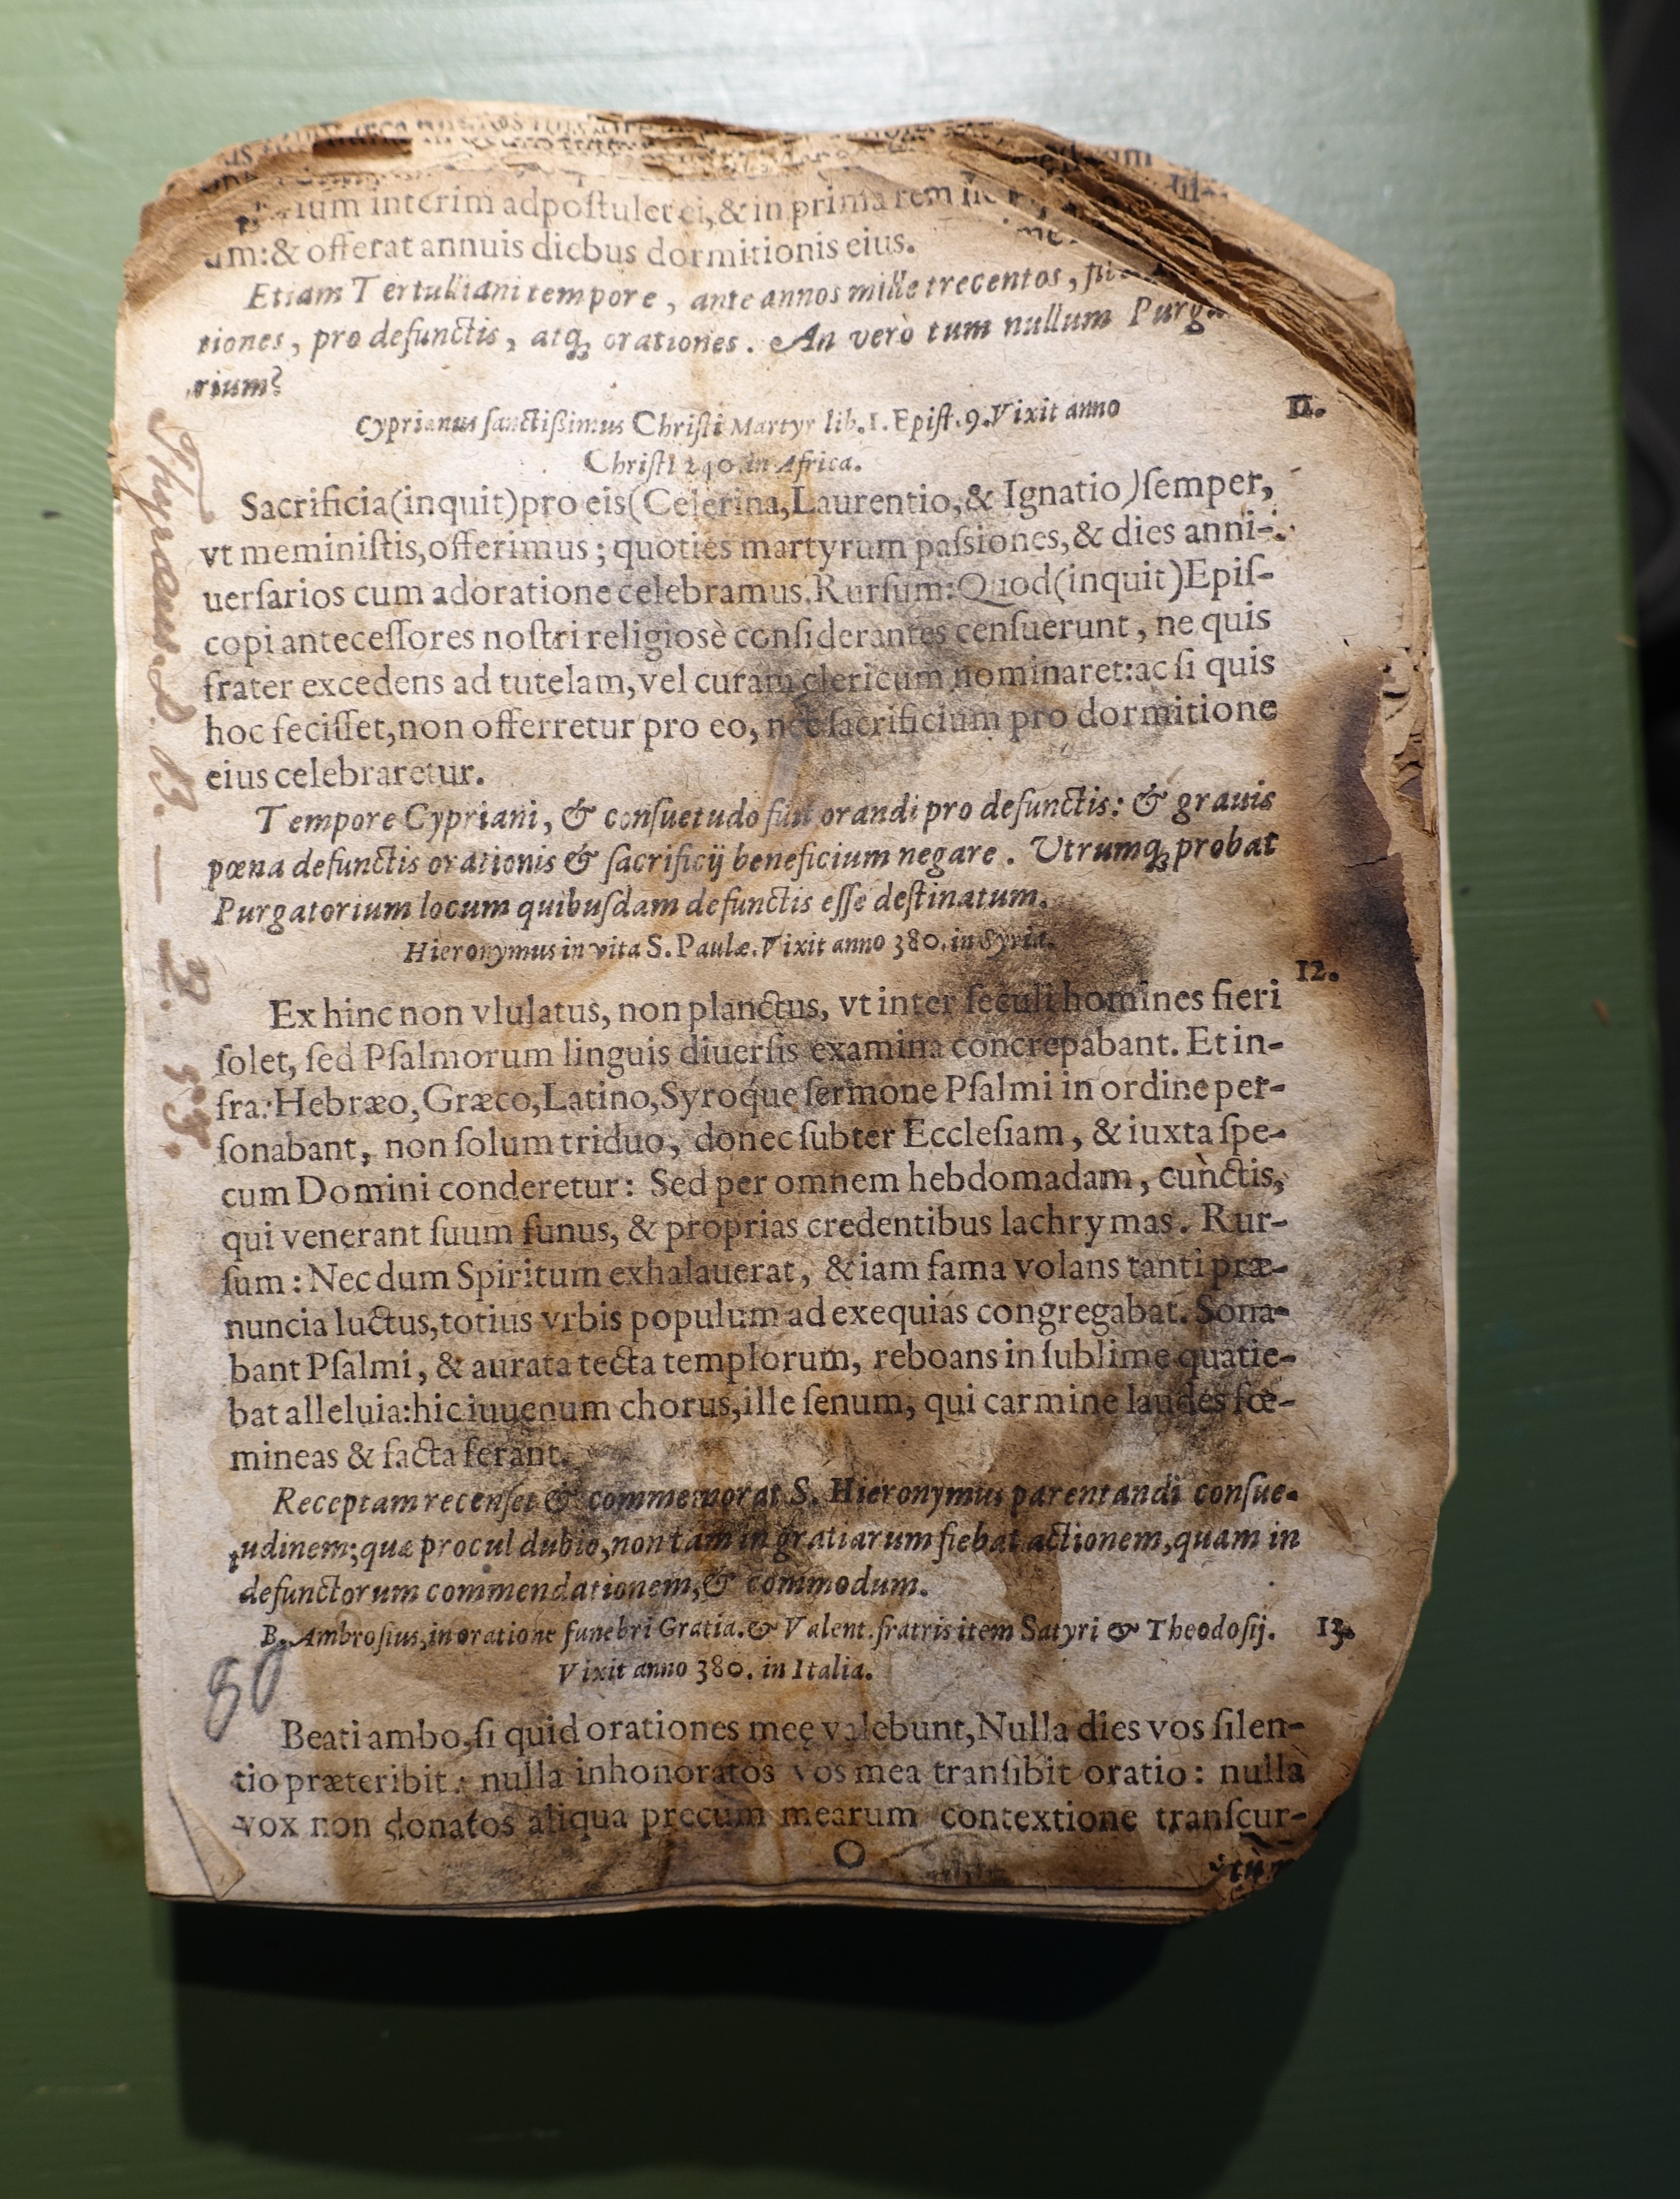 interim adpoſtulet ei, & in prima
um: & offerat annuis diebus dormitionis eius.
Etiam Tertulliani tempore, ante annos mille trecentos,
tiones, pro defunctis, atq; orationes. An verò tum nullum Purga
rium?
Cyprianus ſanctiſsimus Chriſti Martyr lib. 1. Epiſt. 9. Vixit anno
11.
Chriſti 240. in Africa.
Sacrificia (inquit) pro eis (Celerina, Laurentio, & Ignatio) ſemper,
vt meminiſtis, offerimus; quoties martyrum paſsiones, & dies anni-
uerſarios cum adoratione celebramus. Rurſum: Quod (inquit) Epiſ-
copi anteceſſores noſtri religiosè conſiderantes cenſuerunt, ne quis
frater excedens ad tutelam, vel curam clericum nominaret: ac ſi quis
hoc feciſſet, non offerretur pro eo, nec ſacrificium pro dormitione
eius celebraretur.
Tempore Cypriani, & conſuetudo fuit orandi pro defunctis: & grauis
pœna defunctis orationis & ſacrificij beneficium negare. Vtrumq; probat
Purgatorium locum quibuſdam defunctis eſſe deſtinatum.
Hieronymus in vita S. Paulæ. Vixit anno 380. in Syria.
12.
Ex hinc non vlulatus, non planctus, vt inter ſeculi homines fieri
ſolet, ſed Pſalmorum linguis diuerſis examina concrepabant. Et in-
fra: Hebræo, Græco, Latino, Syroque ſermone Pſalmi in ordine per-
ſonabant, non ſolum triduo, donec ſubter Eccleſiam, & iuxta ſpe-
cum Domini conderetur: Sed per omnem hebdomadam, cunctis,
qui venerant ſuum funus, & proprias credentibus lachrymas. Rur-
ſum: Necdum Spiritum exhalauerat, & iam fama volans tanti præ-
nuncia luctus, totius vrbis populum ad exequias congregabat. Sona-
bant Pſalmi, & aurata tecta templorum, reboans in ſublime quatie-
bat alleluia: hic iuuenum chorus, ille ſenum, qui carmine laudes fœ-
mineas & facta ferant.
Receptam recenſet & commemorat S. Hieronymus parentandi conſue-
tudinem; quæ procul dubio, non tam in gratiarum fiebat actionem, quam in
defunctorum commendationem, & commodum.
B. Ambroſius, in oratione funebri Gratia. & Valent. fratris item Satyri & Theodoſij.
13.
Vixit anno 380. in Italia.
Beati ambo, ſi quid orationes meę valebunt, Nulla dies vos ſilen-
tio præteribit: nulla inhonoratos vos mea tranſibit oratio: nulla
vox non donatos aliqua precum mearum contextione tranſcur-
O
Thyraeus
80